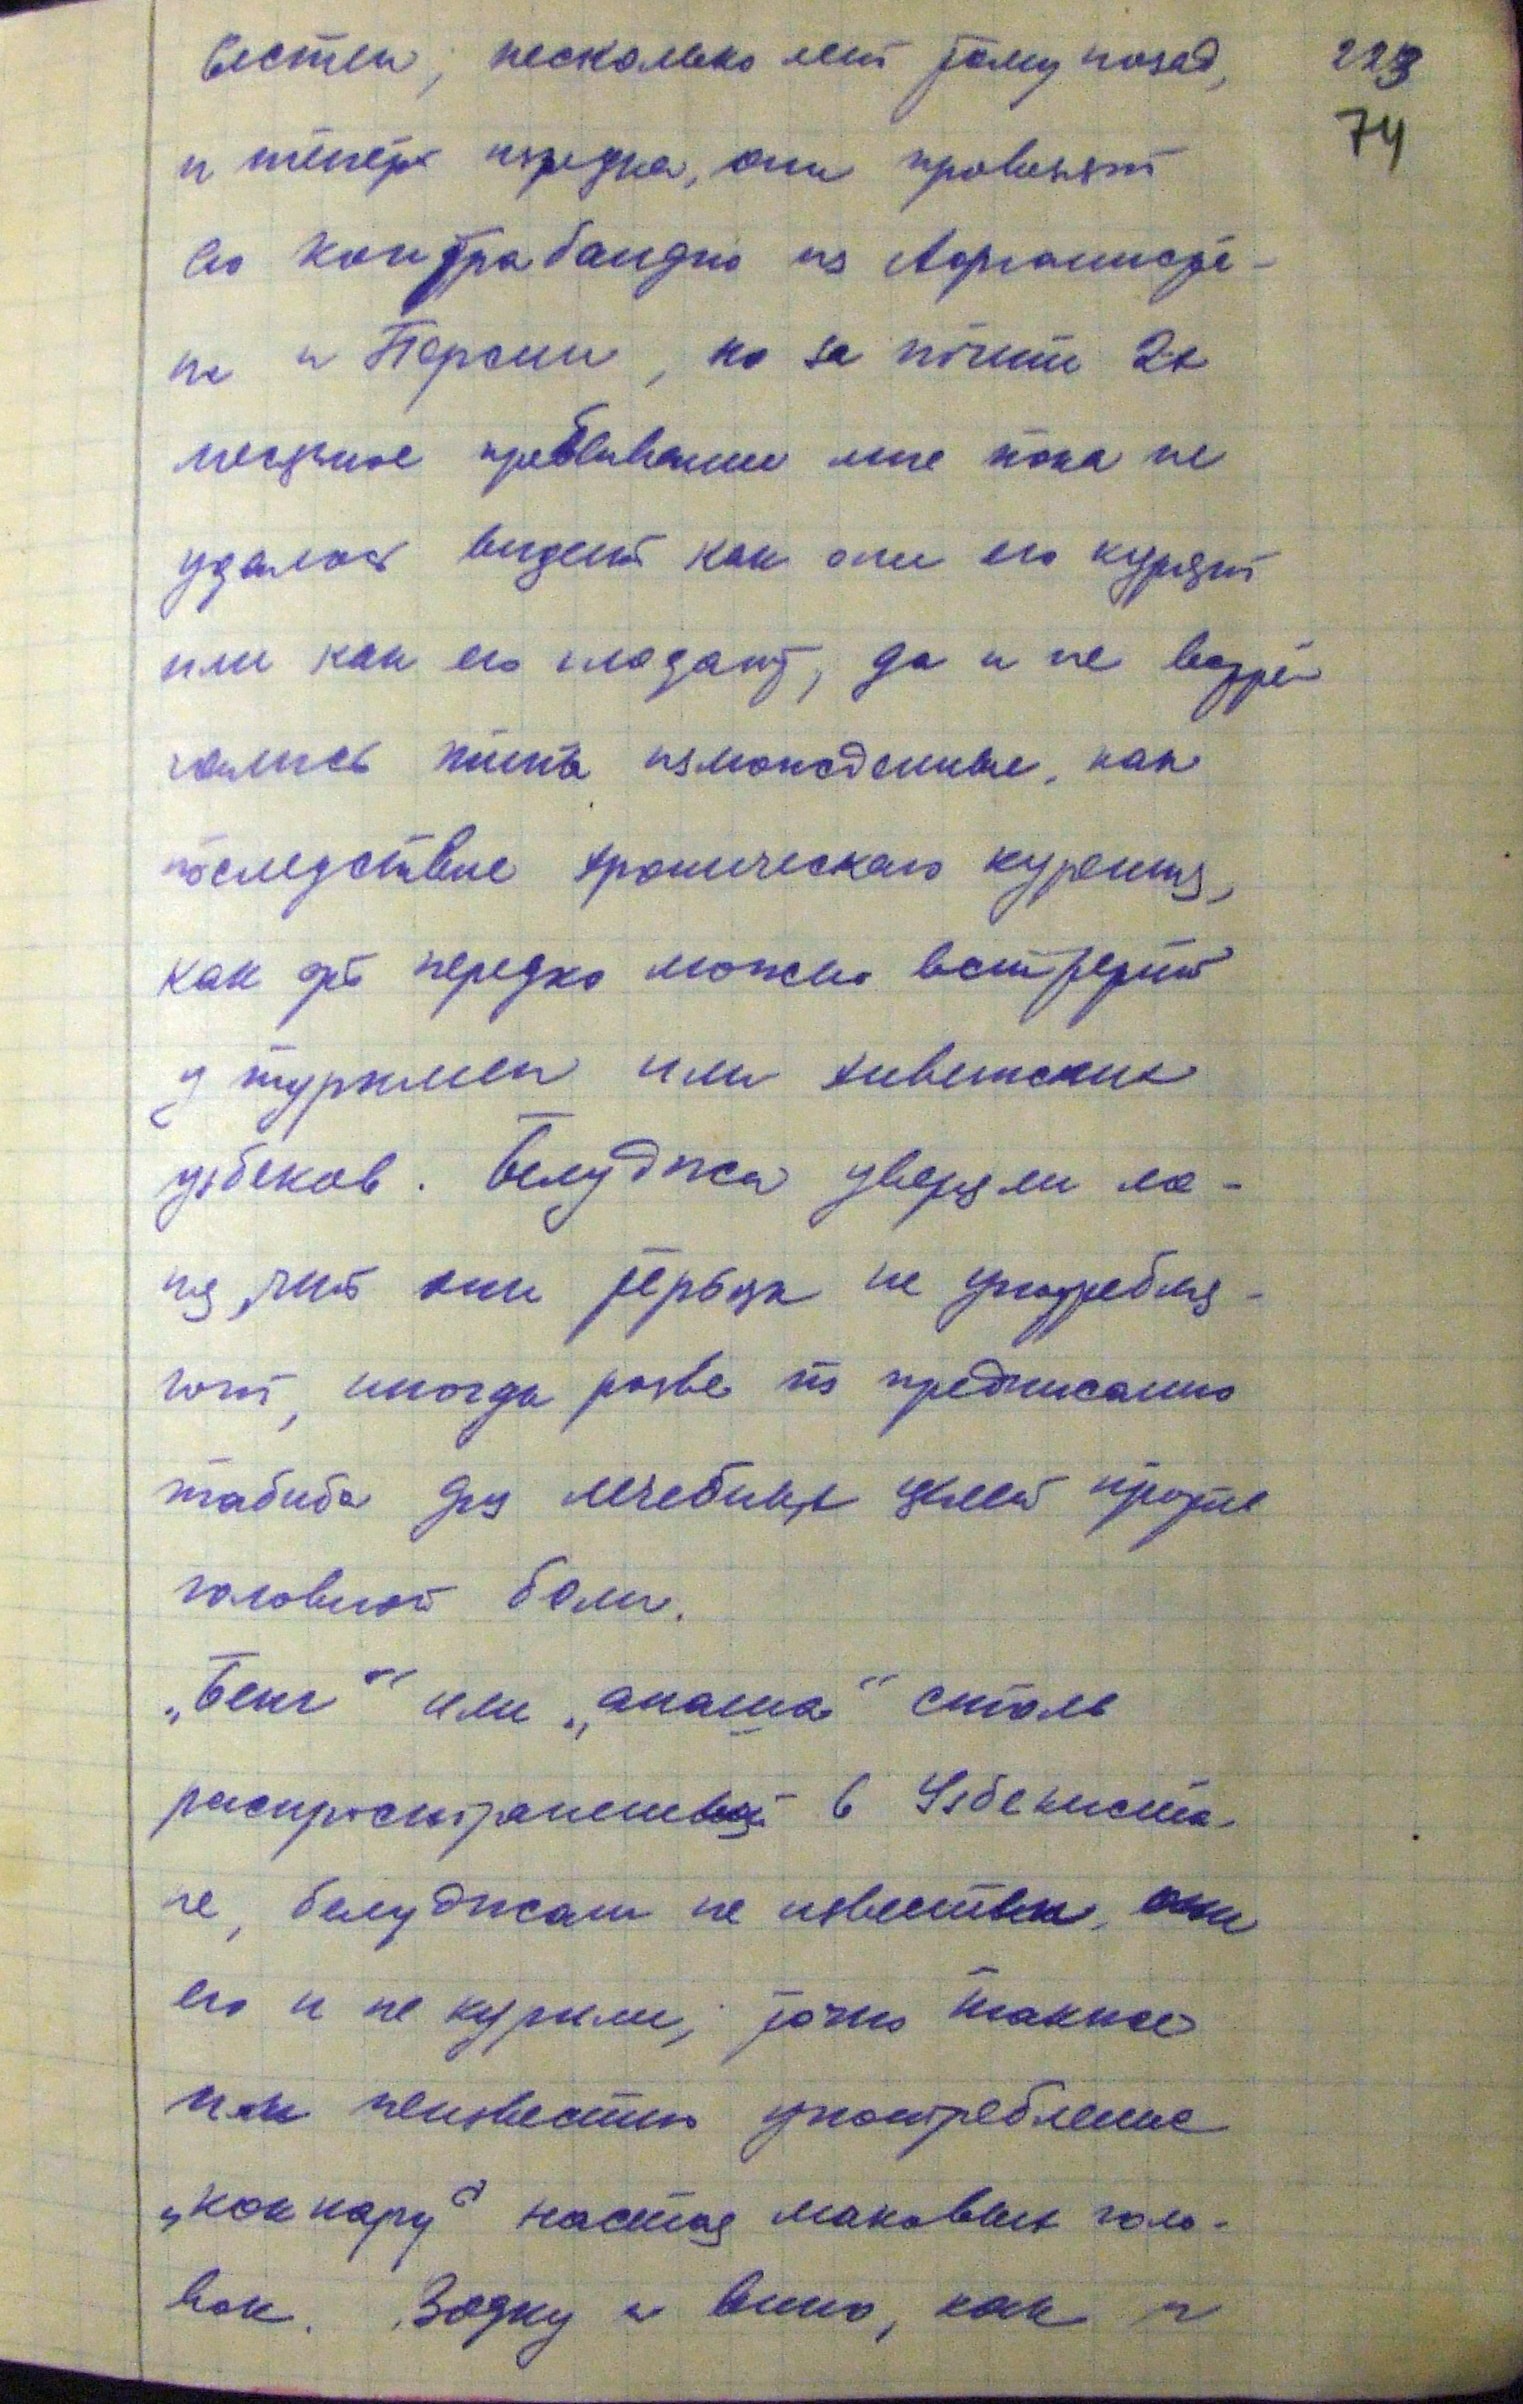 вестен, несколько лет тому назад, 223
и теперь изредка, они провозят 74
его контрабандно из Афганиста-
на и Персии, но за почти 2х
месячное пребывание мне пока не
удалось видеть как они его курят
или как его глодают, да и не встре-
чались типы изможденные, как
последствие хронического курения,
как это нередко можно встретить
у туркмен или хивинских
узбеков. Белуджи уверяли ме-
ня, что они терьяк не употребля-
ют, иногда разве по предписанию
табиба для лечебных целей против
головной боли.
„Бенг“ или „анаша“ столь
распространенный в Узбекиста-
не, белуджам не известен, они
его и не курили, точно также
им неизвестно употребление
„кокнару“ настоя маковых голо-
вок. Водку и вино, как и